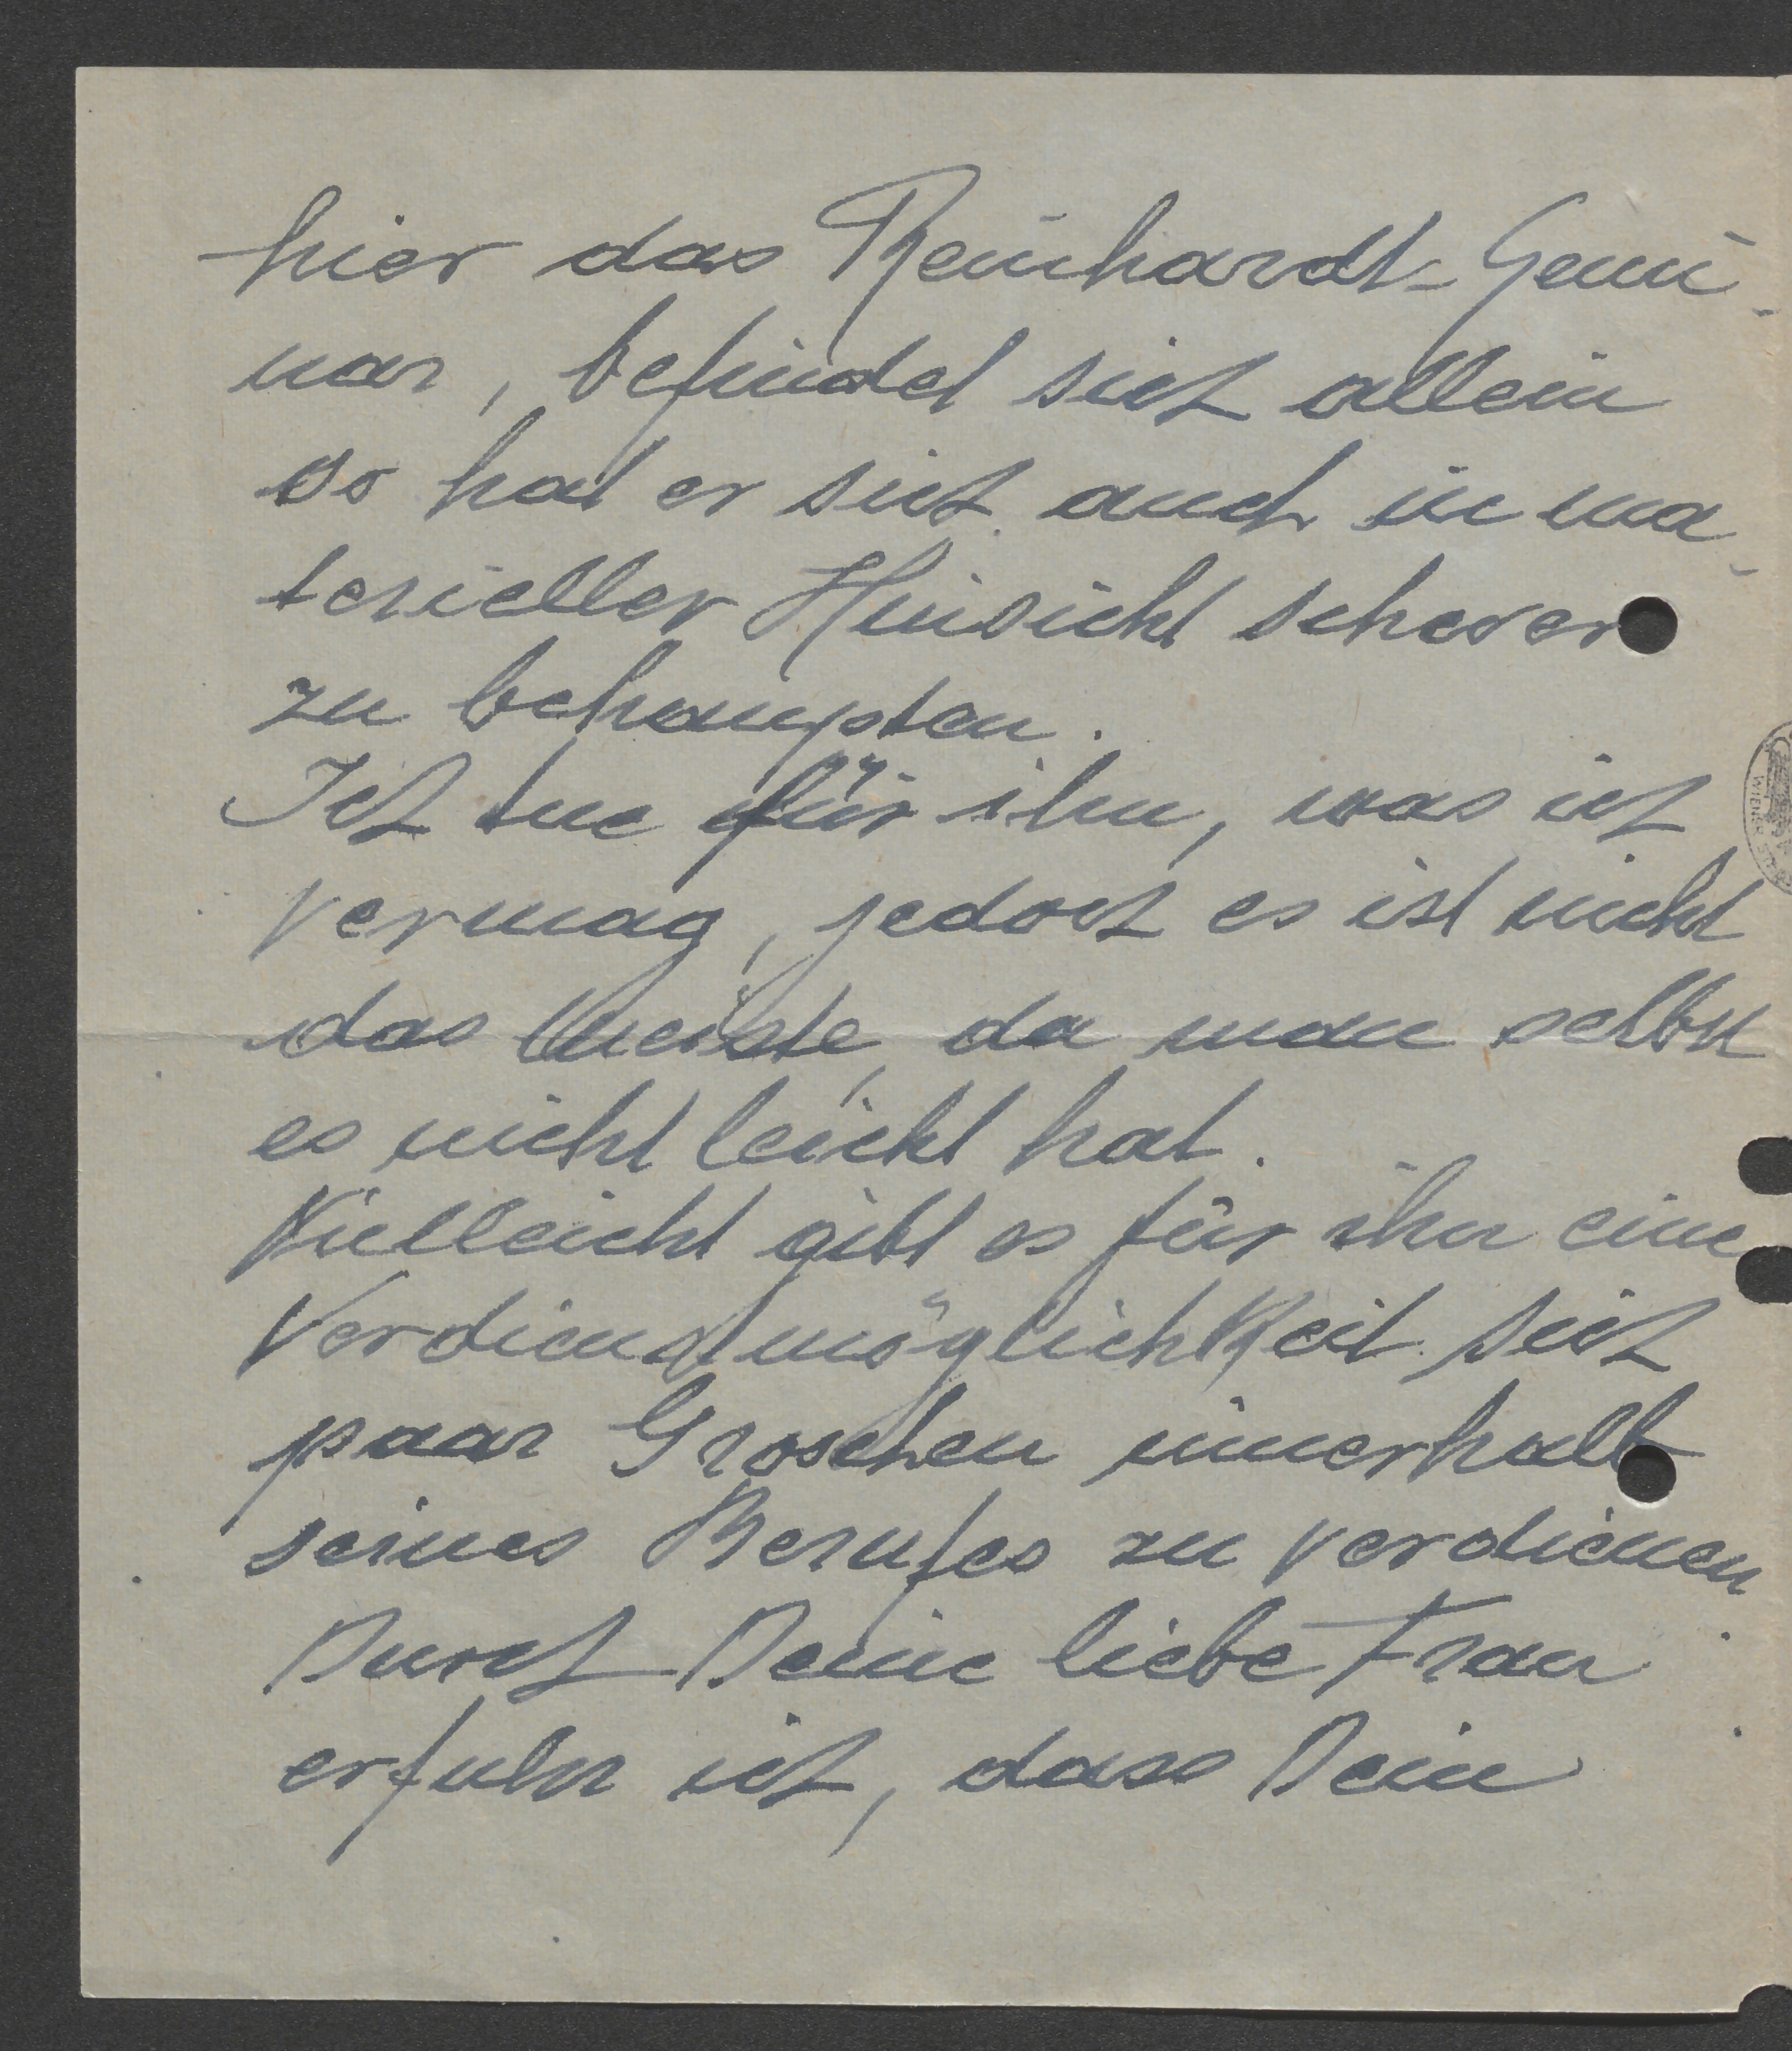 hier das Reinhardt-Semi-
nar, befindet sich allein
so hat er sich auch in ma-
terieller Hinsicht schwer
zu behaupten.
Ich tue für ihn, was ich
vermag, jedoch es ist nicht
das Meiste, da man selbst
es nicht leicht hat.
Vielleicht gibt es für ihn eine
Verdienstmöglichkeit sich
paar Groschen innerhalb
seines Berufes zu verdienen
Durch Deine liebe Frau
erfuhr ich, dass Dein